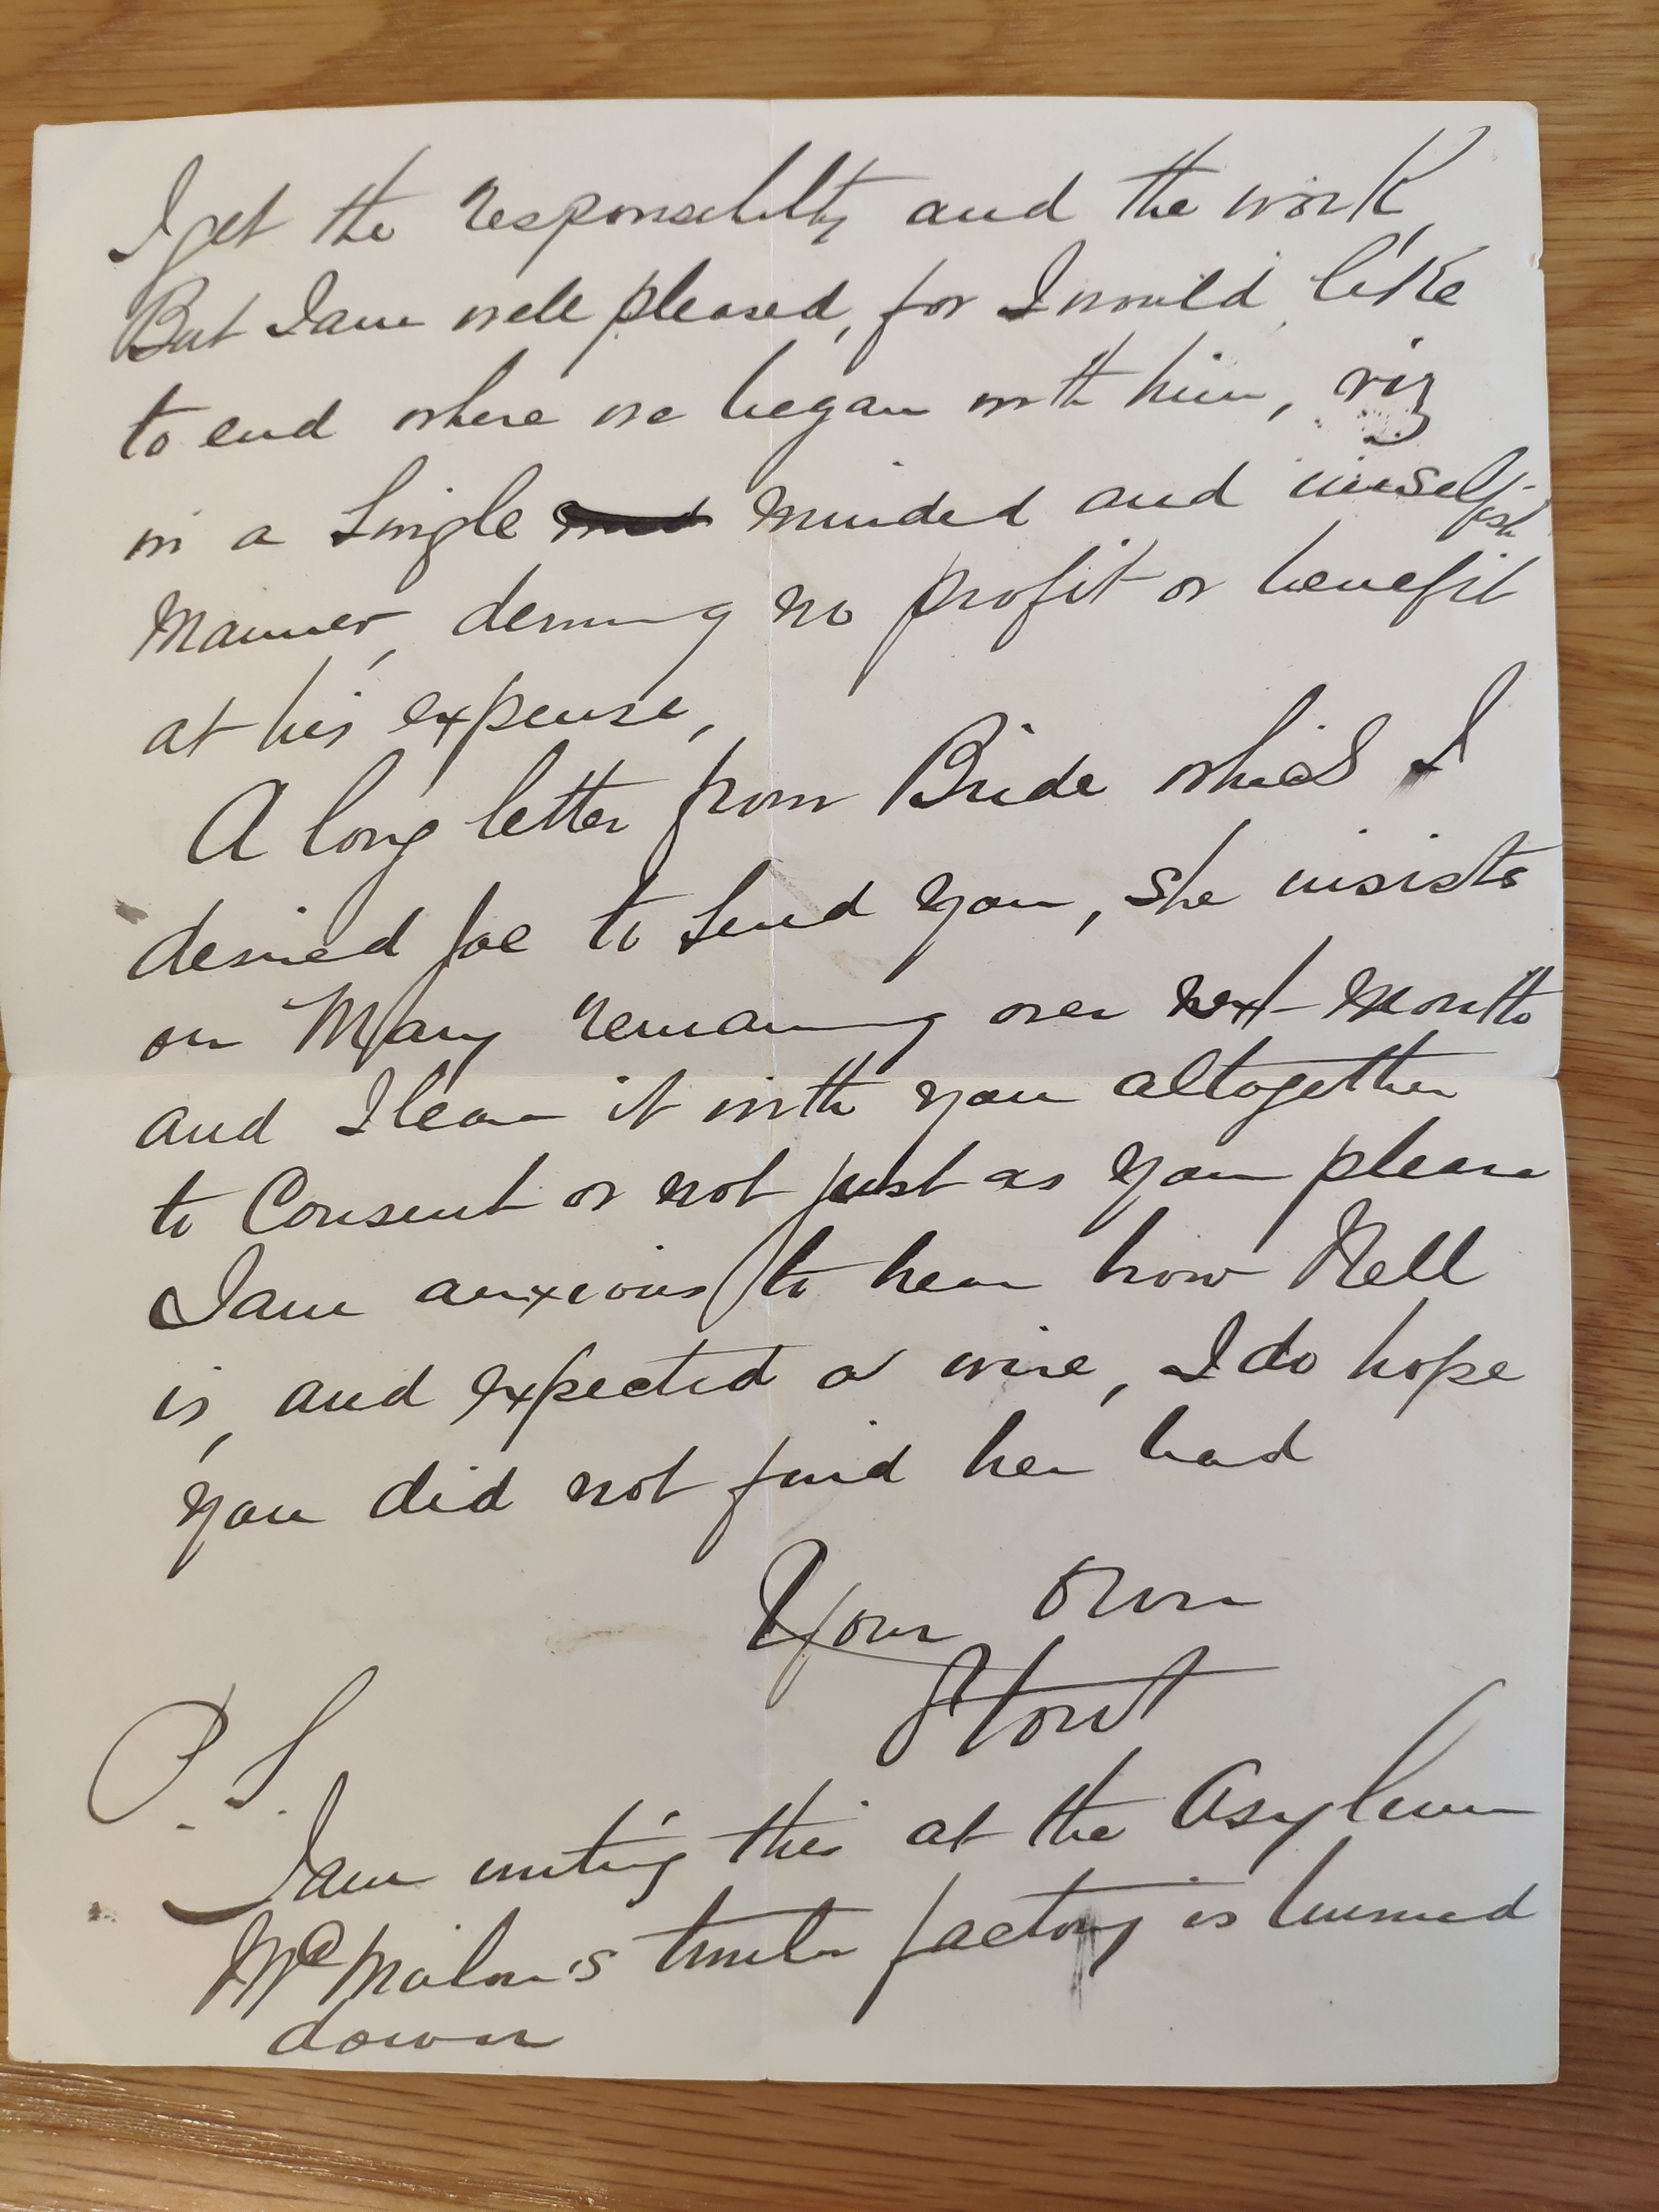 I get the responsibility and the work,
But I am well pleased, for I would like
to end where we began with him, viz
in a Single minded and unselfish
Manner, deriving no profit or benefit
at his expense,
A long letter from Bride which I
desired Joe to Send you, She insists
on Mary remaining over next month
and I leave it with you altogether
to Consent or not just as you please
I am anxious to hear how Nell
is, and expected a wire, I do hope
you did not find her bad
Your own
P.S.
I am writing this at the Asylum
timber factory is burned
down